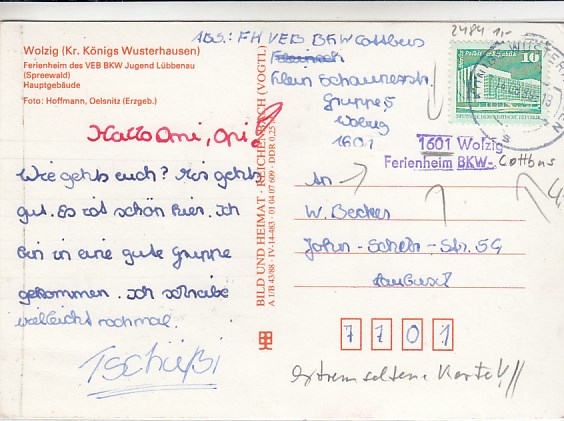 Wolzig (Kr. Königs Wusterhausen)
Ferienheim des VEB BKW Jugend Lübbenau
(Spreewald)
Hauptgebäude
Foto: Hoffmann, Oelsnitz (Erzgeb.)
Hallo Omi, Opi!
Wie gehts euch? Mir gehts
gut. Es ist schön hier. Ich
bin in eine gute Gruppe
gekommen. Ich schreibe
vielleicht nochmal.
Tschüßi
BILD UND HEIMAT · REICHENBACH (VOGTL)
A 1/B 43/88 · IV-14-483 · 01 04 07 609 · DDR 0,25
ABS.: FH VEB BKW Cottbus
Klein Schauener Str.
Gruppe 5
Wolzig
1601
2484 1,-
10
1601 Wolzig
Ferienheim BKW- Cottbus
An
W. Becker
John-Schehr-Str. 59
7701
Extrem seltene Karte!!!